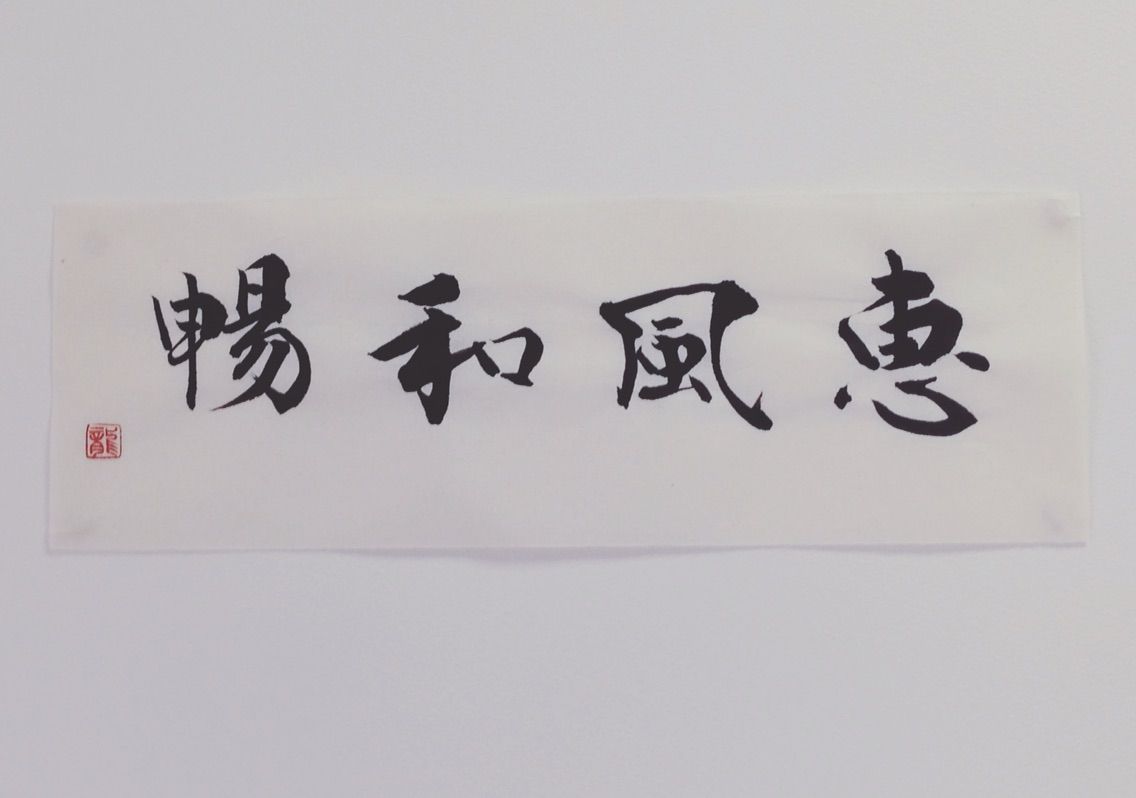 惠風和暢
龍